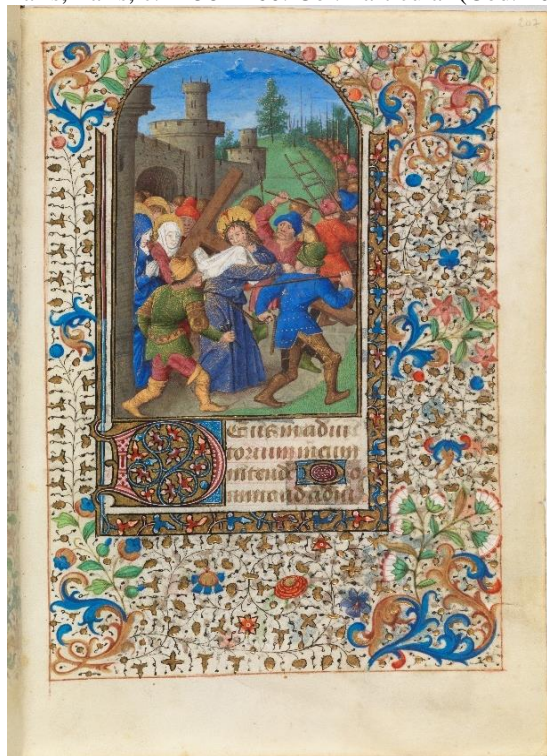 207
Deus in adiu
torium meum
intende Do
mine ad adiu